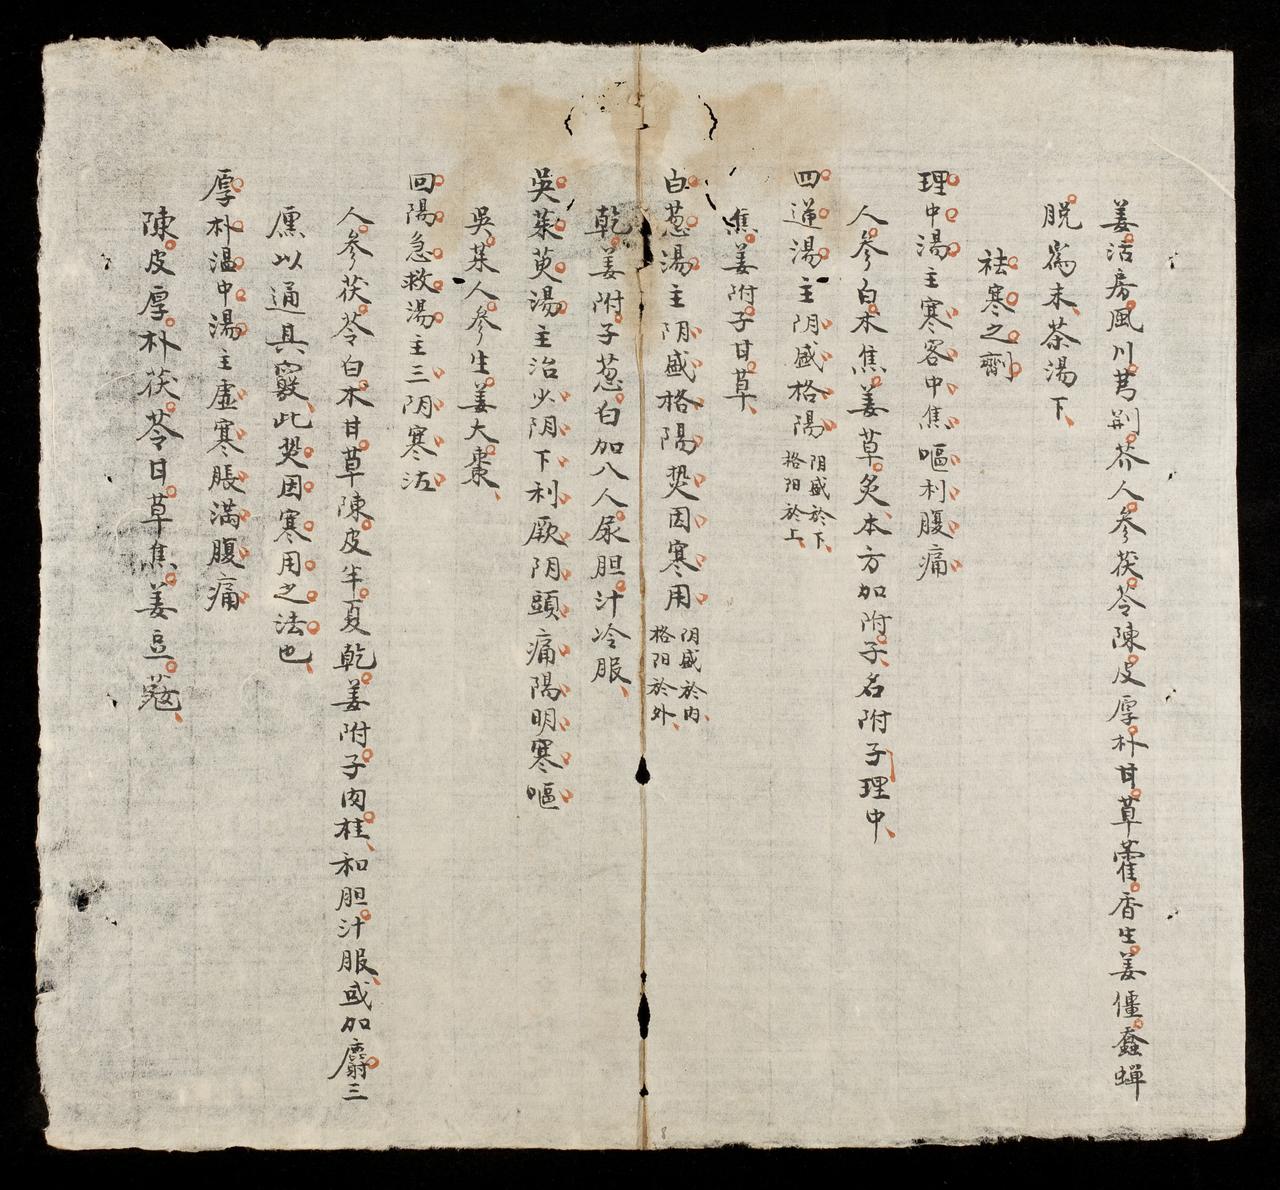 姜活房風川芎荆芥人參茯苓陳皮厚朴甘草藿香生姜僵蚕蝉
脱為末茶湯下
祛寒之劑
理中湯主寒客中焦嘔利腹痛
人參白术焦姜草炙本方加附子名附子理中
四逆湯主阴盛格陽
阴盛於下
格阳於上
焦姜附子甘草
白葱湯主阴盛格陽熒因寒用
阴盛於内
格阳於外
乾姜附子葱白加入人尿胆汁冷服
吳茱萸湯主治少阴下利厥阴頭痛陽明寒嘔
吳茱人參生姜大棗
回陽急救湯主三阴寒
人參茯苓白术甘草陳皮半夏乾姜附子肉桂和胆汁服或加麝三
厘以通其竅此熒因寒用之法也
厚朴温中湯主虚寒脹满腹痛
陳皮厚朴茯苓甘草焦姜豆蔻